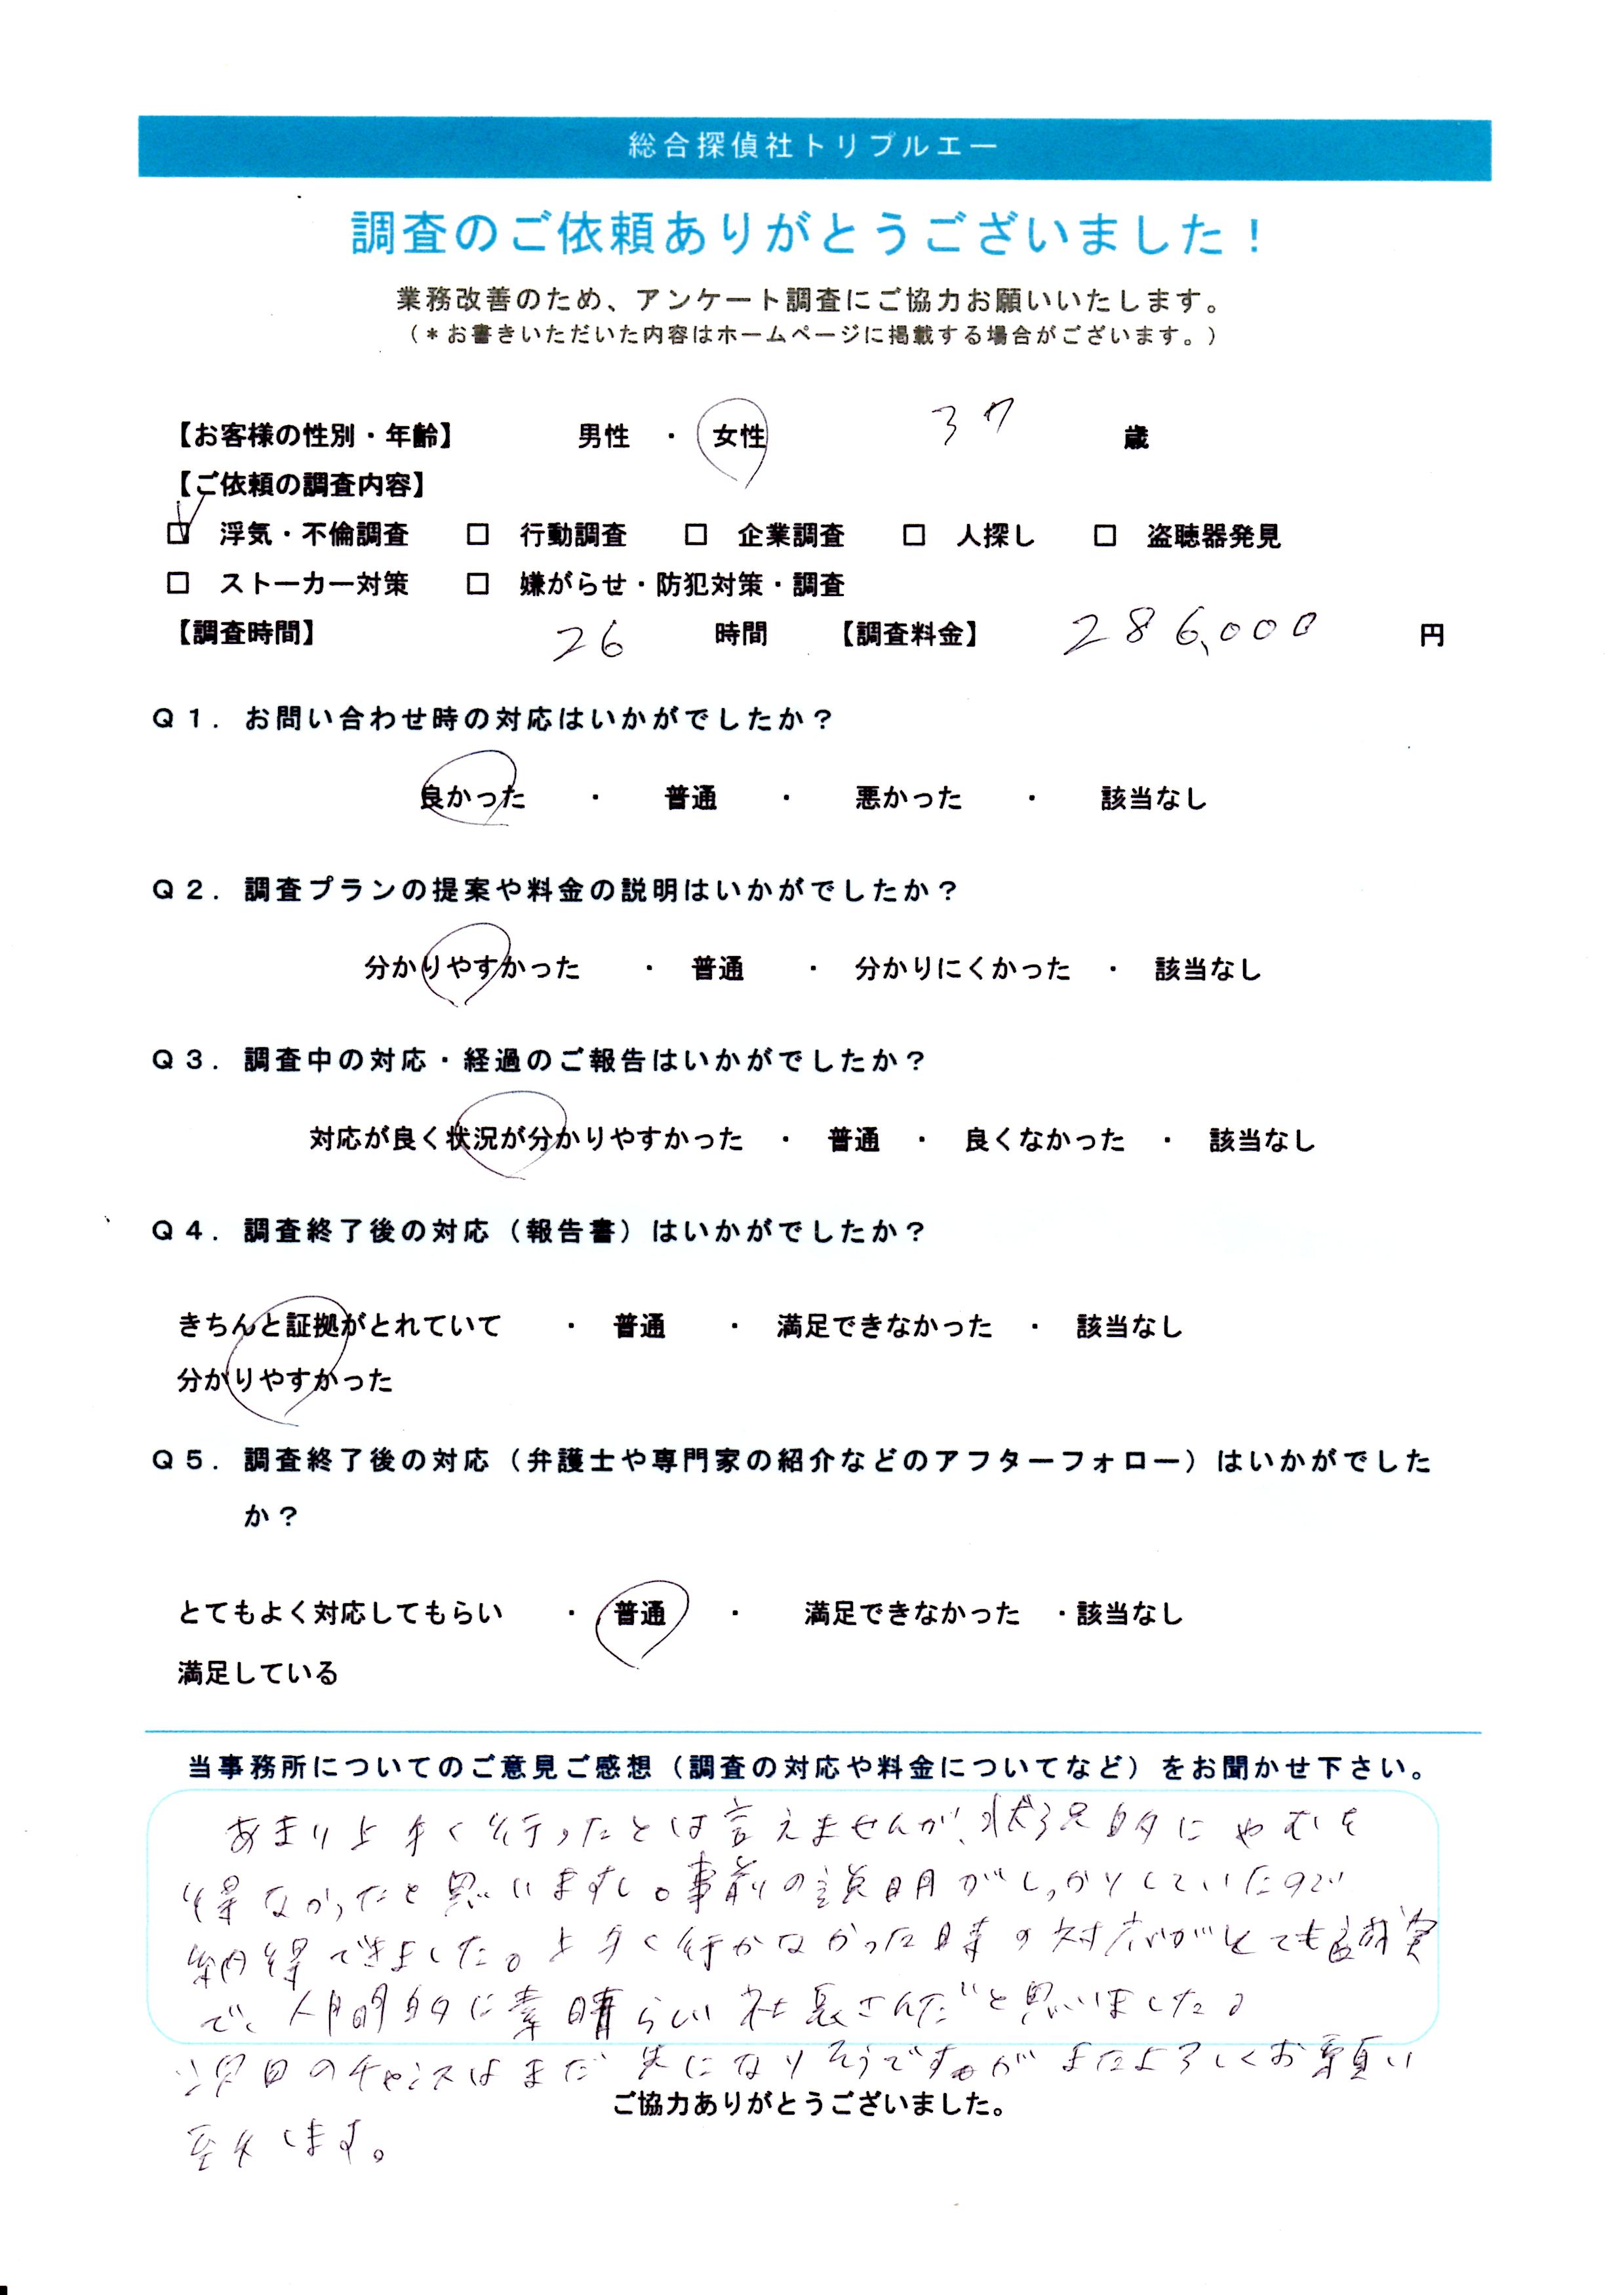 総合探偵社トリプルエー
調査のご依頼ありがとうございました！
業務改善のため、アンケート調査にご協力お願いいたします。
（＊お書きいただいた内容はホームページに掲載する場合がございます。）
【お客様の性別・年齢】 男性 ・ 女性 37 歳
【ご依頼の調査内容】
☑ 浮気・不倫調査 □ 行動調査 □ 企業調査 □ 人探し □ 盗聴器発見
□ ストーカー対策 □ 嫌がらせ・防犯対策・調査
【調査時間】 26 時間 【調査料金】 286,000 円
Ｑ１．お問い合わせ時の対応はいかがでしたか？
良かった ・ 普通 ・ 悪かった ・ 該当なし
Ｑ２．調査プランの提案や料金の説明はいかがでしたか？
分かりやすかった ・ 普通 ・ 分かりにくかった ・ 該当なし
Ｑ３．調査中の対応・経過のご報告はいかがでしたか？
対応が良く状況が分かりやすかった ・ 普通 ・ 良くなかった ・ 該当なし
Ｑ４．調査終了後の対応（報告書）はいかがでしたか？
きちんと証拠がとれていて ・ 普通 ・ 満足できなかった ・ 該当なし
分かりやすかった
Ｑ５．調査終了後の対応（弁護士や専門家の紹介などのアフターフォロー）はいかがでした
か？
とてもよく対応してもらい ・ 普通 ・ 満足できなかった ・該当なし
満足している
当事務所についてのご意見ご感想（調査の対応や料金についてなど）をお聞かせ下さい。
あまり上手く行ったとは言えませんが、状況的にやむを
得なかったと思いますし。事前の説明がしっかりしていたので
納得できました。上手く行かなかった時の対応がとても誠実
で、人間的に素晴らしい社長さんだと思いました。
次回のチャンスはまだ先になりそうですが またよろしくお願い
ご協力ありがとうございました。
至します。